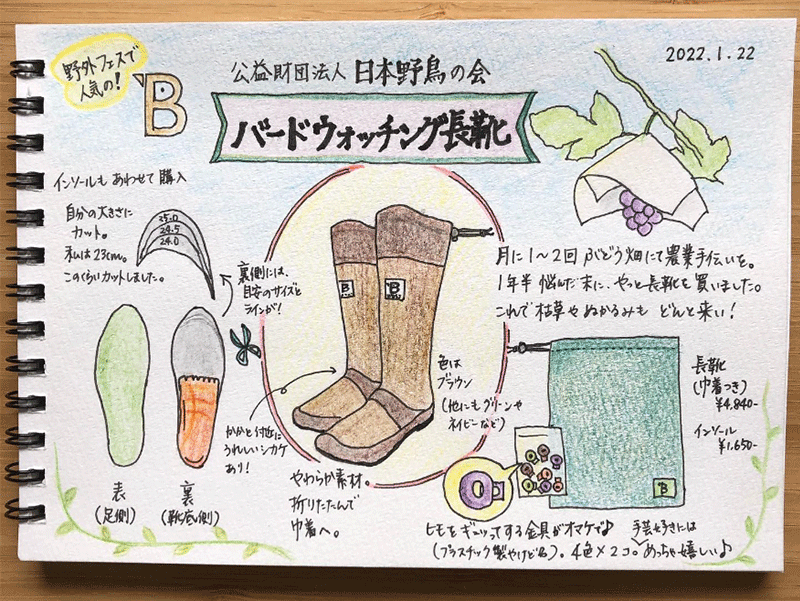 2022.1.22
野外フェスで
人気の!
B
公益財団法人 日本野鳥の会
バードウォッチング長靴
インソールも あわせて購入
自分の大きさに
カット。
私は23cm。
このくらいカットしました。
25.0
24.5
24.0
裏側には、
目安のサイズと
ラインが!
表
(足側)
裏
(靴底側)
かかと付近に
うれしいシカケ
あり!
色は
ブラウン
(他にもグリーンや
ネイビーなど)
やわらか素材。
折りたたんで
巾着へ。
月に1〜2回 ぶどう畑にて農業手伝いを。
1年半 悩んだ末に、やっと長靴を買いました。
これで枯草やぬかるみも どんと来い!
長靴
(巾着つき)
¥4,840-
インソール
¥1,650-
B
ヒモをギューッてする金具がオマケで♪
(プラスチック製やけど名)。4色×2コ。
手芸好きには
めっちゃ嬉しい♪